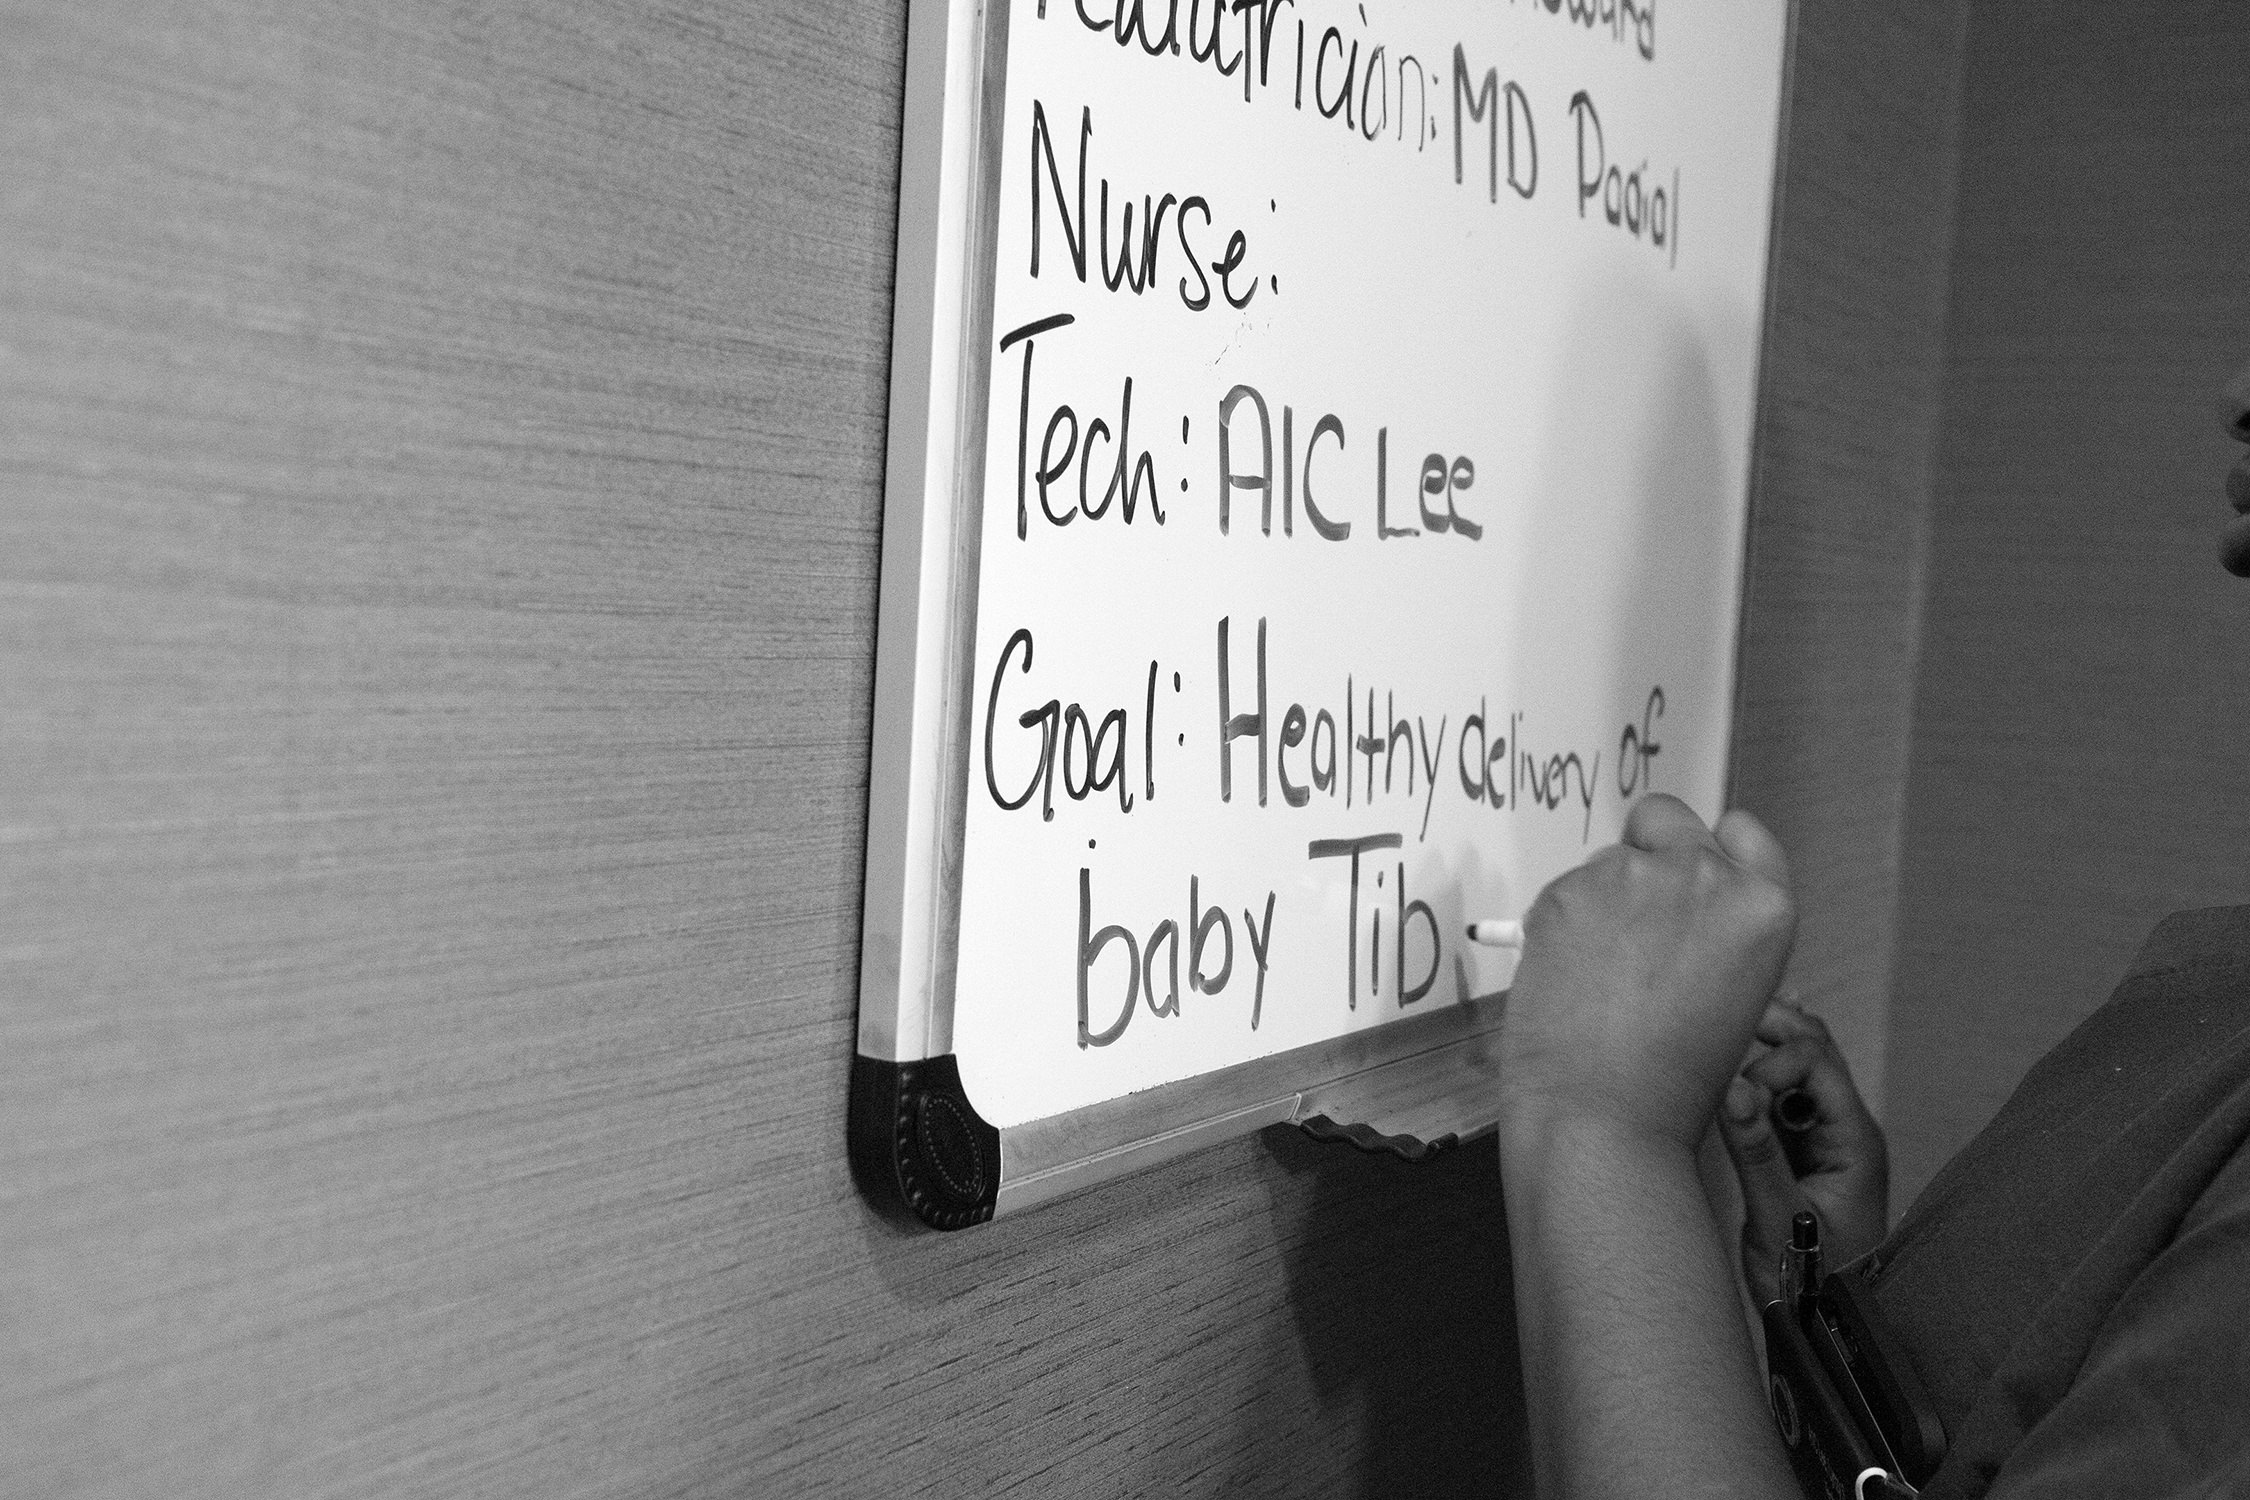 Pediatrician: MD Padial
Nurse:
Tech: A1C Lee
Goal: Healthy delivery of
baby Tib